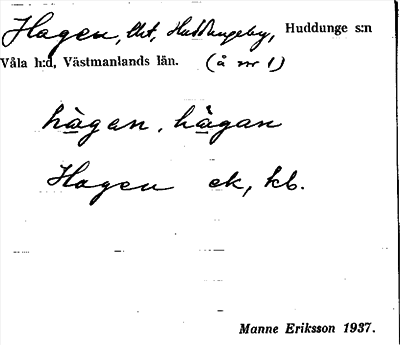 Hagen, lht, Huddungeby, Huddunge s:n
Våla h:d, Västmanlands län. (å nr 1)
hàgan, hàgan
Hagen ek, kb.
Manne Eriksson 1937.